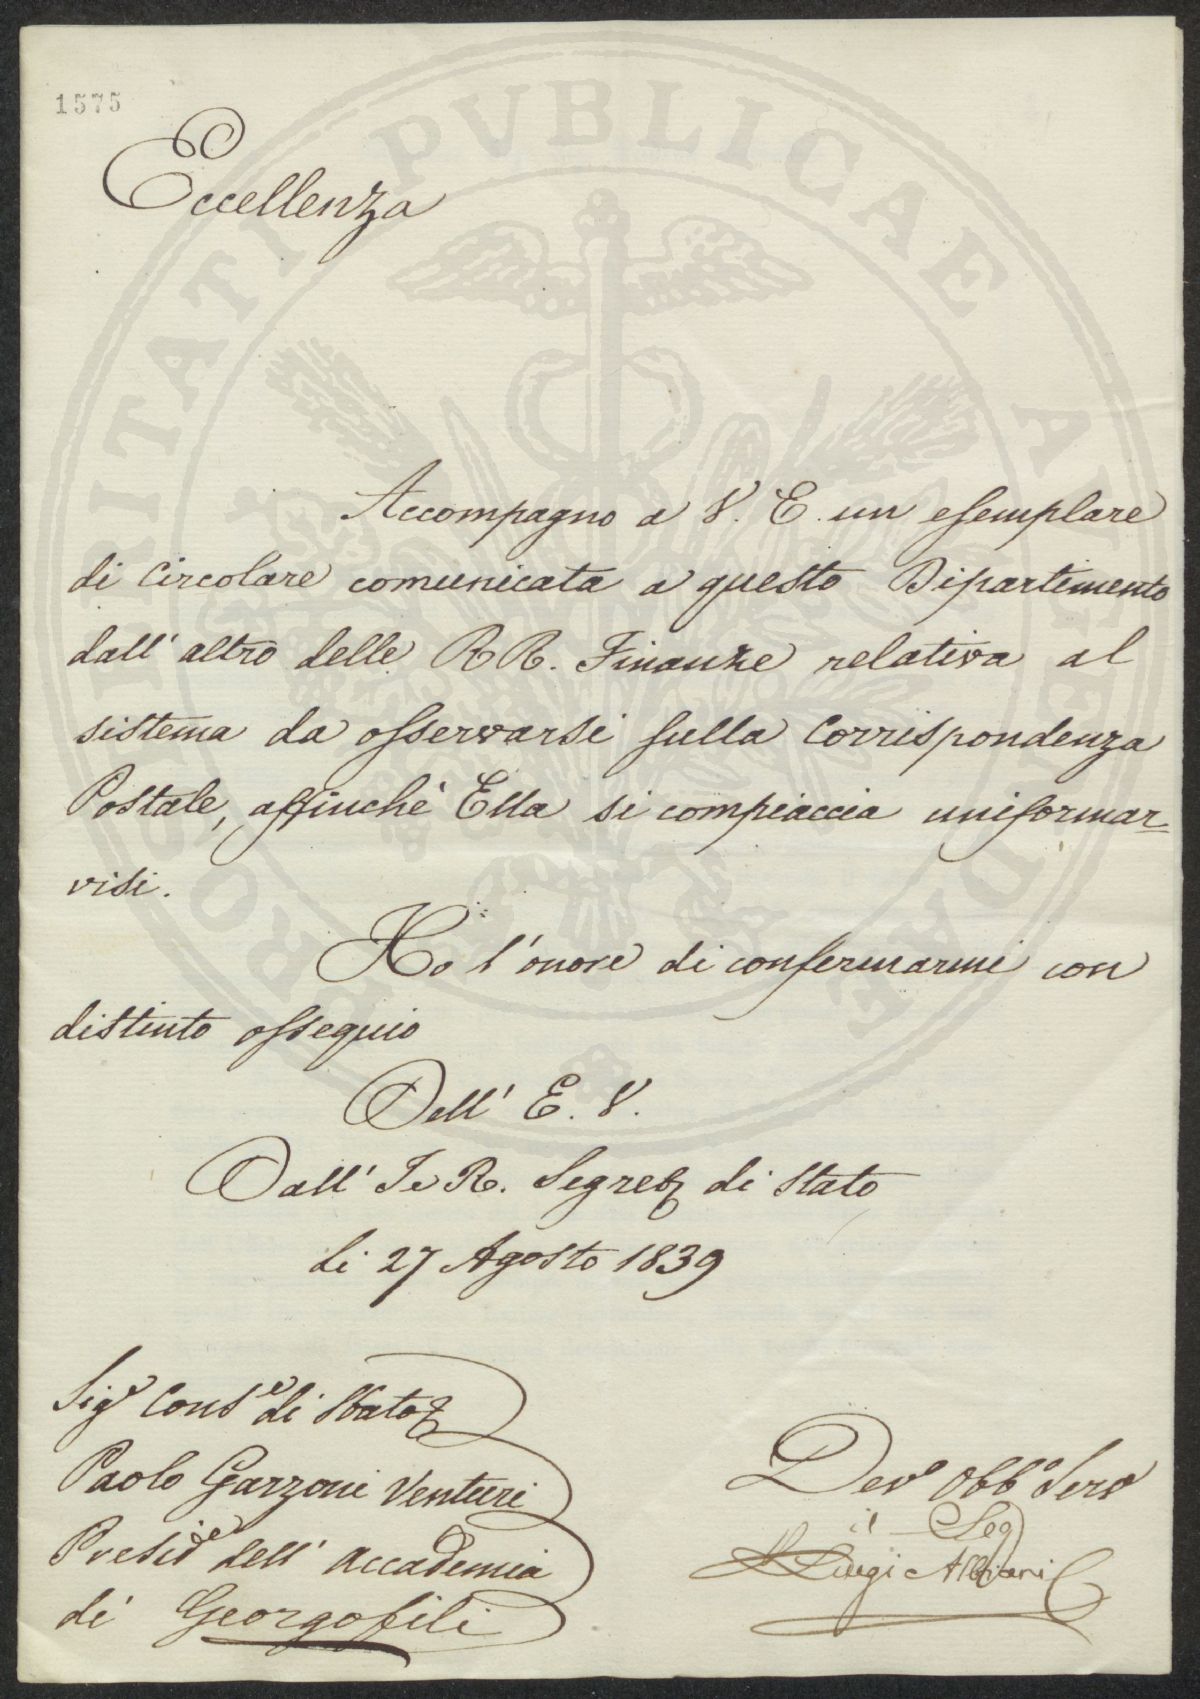 1575
PROSPERITATI PVBLICAE AVGENDAE
Eccellenza
Accompagno a V. E. un esemplare
di Circolare comunicata a questo Dipartimento
dall' altro delle RR. Finanze relativa al
sistema da osservarsi sulla Corrispondenza
Postale, affinchè Ella si compiaccia uniformar=
visi.
Ho l'onore di confermarmi con
distinto ossequio
Dell' E. V.
Dall' I e R. Segret di Stato
li 27 Agosto 1839
Sigre Conse di Stato
Paolo Garzoni Venturi
Preside dell' Accademia
di Georgofili
Devo Obbo Serv
il Seg
Luigi Albiani